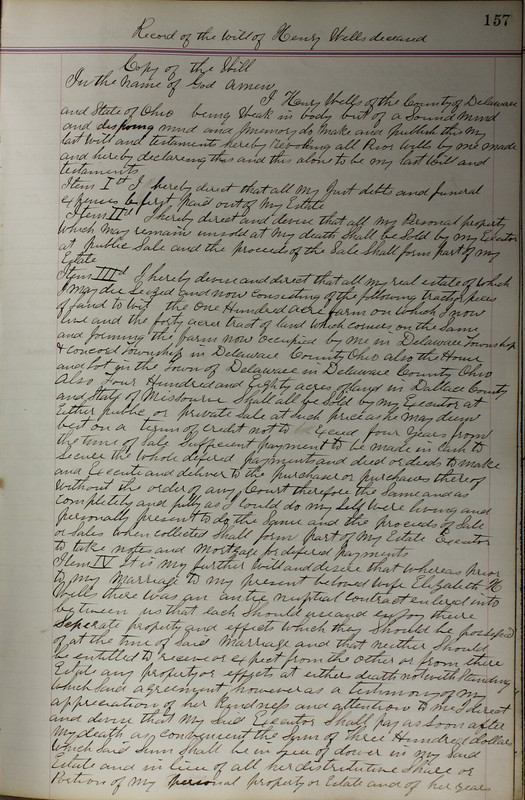 157
Record of the Will of Henry Wells deceased
Copy of the Will
In the Name of God Amen
I Henry Wells of the County of Delaware
and State of Ohio being Weak in body but of a Sound Mind
and disposing mind and Memory do Make and publish this My
last Will and testament hereby Revoking all Prior Wills by me made
and hereby declareing this and this alone to be my last Will and
testament
Item Ist I hereby direct that all My Just debts and funeral
expences be first paid out of My Estate
Item IInd I hereby direct and devise that all My Personal property
Which May remain unsold at My death Shall be Sold by My Executor
at public Sale and the proceeds of the Sale Shall form part of my
Estate
Item IIId I hereby devise and direct that all My real estate of which
I may die Seized and now consisting of the following tracts or pieces
of land to wit the One Hundred acre farm on Which I now
live and the forty acres tract of land which corners on the Same
and forming the farm now occupied by me in Delaware Township
& Concord Township in Delaware County Ohio also the House
and lot in the Town of Delaware in Delaware County Ohio
Also Four Hundred and Eighty acres of land in Dallas County
and State of Missourie Shall all be Sold by My Executor at
Either public or private Sale at Such price as he May deem
best on a term of credit not to Exceed four Years from
the time of Sale Sufficient payment to be made in Cash to
Secure the Whole defered payments and deed or deeds to make
and Execute and deliver to the purchaser or purchasers thereof
Without the order of any Court therefore the Same and as
completely and fully as I could do My Self Were living and
personally present to do the Same and the proceeds of Sale
or Sales when collected Shall form part of My Estate Executor
to take notes and Mortgage for defered payments
Item IV It is my further Will and desire that Whereas prior
to my Marriage to my present beloved Wife Elizabeth H
Wells there was an antie nuptial Contract entered into
between us that each Should use and enjoy there
Seperate property and effects which they Should be possessed
of at the time of Said Marriage and that neither Should
be entitled to receive or expect from the other or from there
Estate any property or effects at either death notwithStanding
Which Said agreement however as a testimony of my
appreciation of her Kindness and attention to me I direct
and devise that My Said Executor Shall pay as Soon after
My death as convenient the Sum of three Hundred dollars
Which Said Sum Shall be in lieu of dower in my Said
Estate and in lieu of all her distributive Share or
Portion of My personal property or Estate and of her years